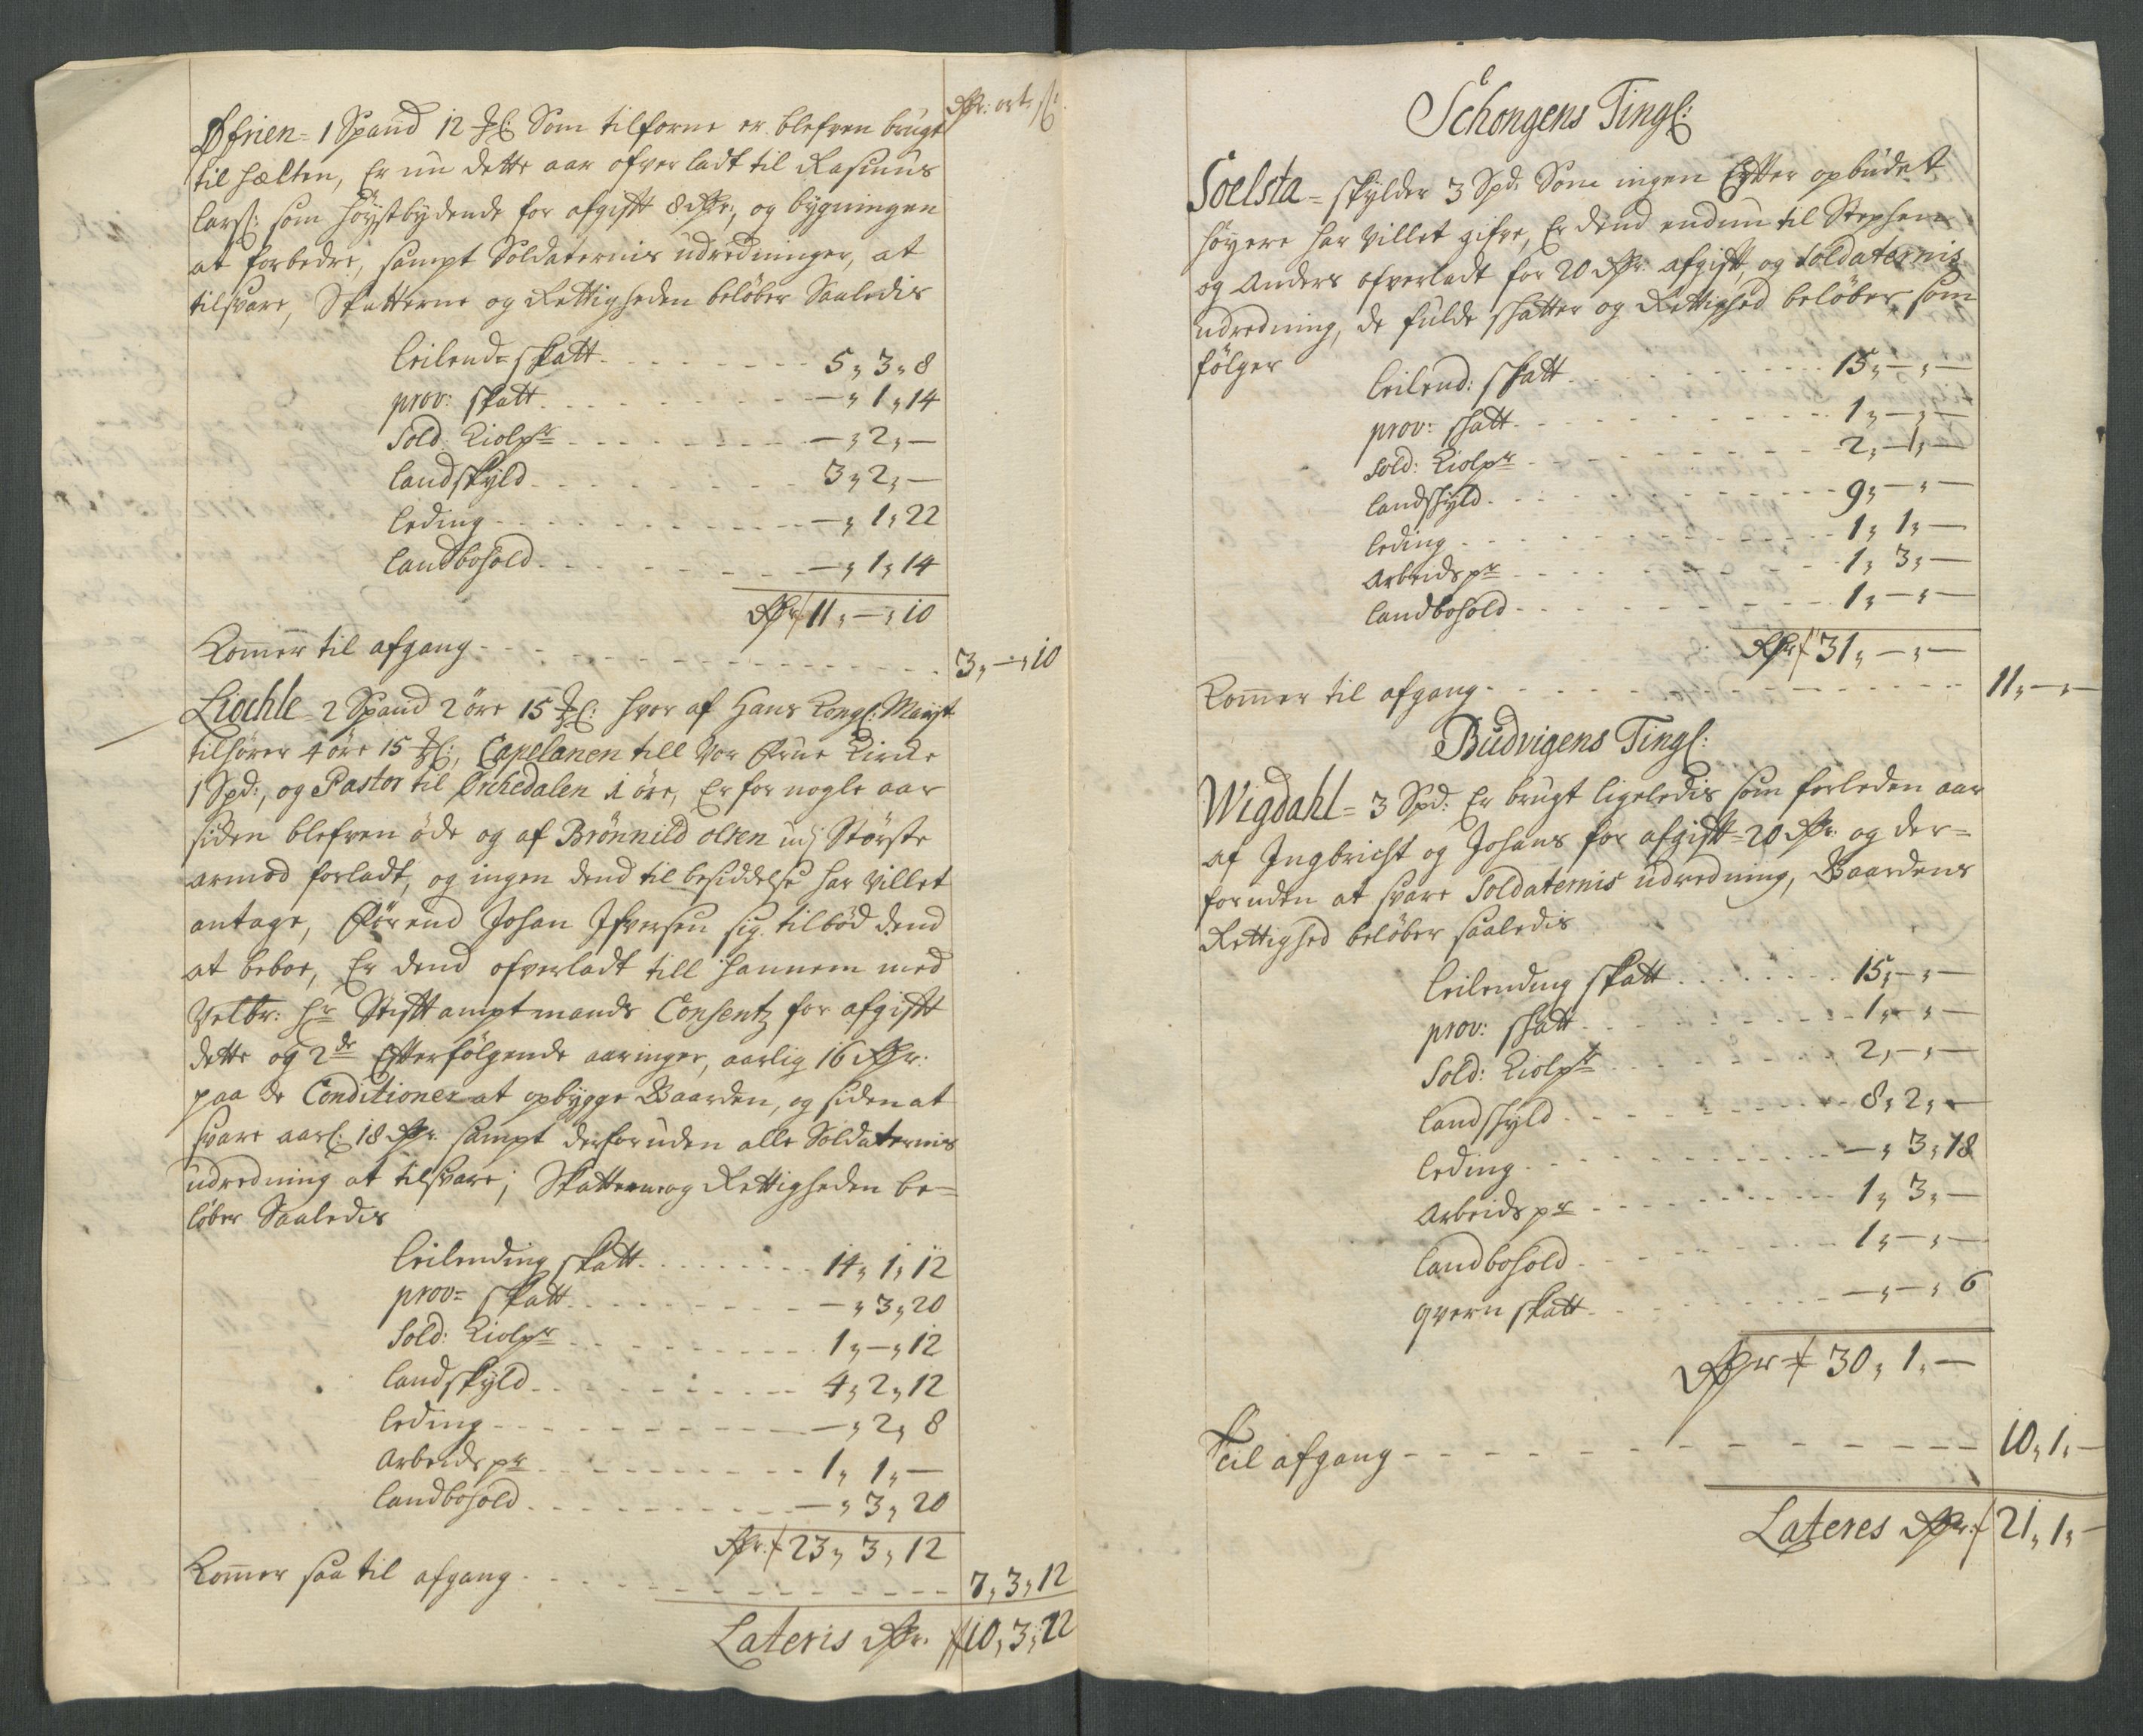 Rdr: ort: s:
Øfrien = 1 Spand 12 mkl: Som tilforne er blefven brugt
til Hælten, Er nu dette aar ofverladt til Rasmus
Lars: som høystbydende for afgifft 8 Rdr:, og bygningen
at forbedre, sampt Soldaternis udredninger, at
tilsvare, Skatterne og Rettigheden beløber Saaledis
Leilend= skatt - - - 5„ 3„ 8
prov: skatt - - - —„ 1„ 14
Sold: Kiolpr - - - —„ 2„ —
Landskyld - - - 3„ 2„ —
Leding - - - —„ 1„ 22
Landbohold - - - —„ 1„ 14
Rdr 11„ —„ 10
Komer til afgang - - - 3„ —„ 10
Liochle = 2 Spand 2 öre 15 mkl: hvor af Hans Kongl: Mayst
tilhører 4 öre 15 mkl:, Capelanen till Vor Frue Kircke
1 Spd:, og Pastor til Orchedalen 1 öre, Er for nogle aar
siden blefven øde og af Brönnild olsen udj Största
armod forladt, og ingen dend til besiddelse har villet
antage, Förend Johan Ifversen sig tilbød dend
at beboe, Er dend ofverladt till hannem med
Velbr: Hr Stifftamptmands Consentz for afgifft
dette og 2de Efterfölgende aaringer, aarlig 16 Rdr:
paa de Conditioner at opbygge Gaarden, og siden at
svare aarl: 18 Rdr. sampt derforuden alle Soldaternis
udredning at tilsvare; Skatterne og Rettigheden be=
løber Saaledis
Leilending skatt - - - 14„ 1„ 12
prov= skatt - - - —„ 3„ 20
Sold: Kiolpr - - - 1„ —„ 12
Landskyld - - - 4„ 2„ 12
Leding - - - —„ 2„ 8
Arbeidspr - - - 1„ 1„ —
Landbohold - - - —„ 3„ 20
Rdr: 23„ 3„ 12
Komer saa til afgang - - - 7„ 3„ 12
Lateris Rdr. 10„ 3„ 22
Schongens Tingl:
Soelsta = skylder 3 Spd: Som ingen Efter opbudet
høyere har villet gifve, Er dend endnu til Stephen
og Anders ofverladt for 20 Rdr: afgifft, og Soldaternis
udredning, de fulde skatter og Rettighed beløber, som
følger
Leilend: skatt - - - 15„ —„ —
prov: skatt - - - 1„ —„ —
Sold: Kiolpr - - - 2„ 1„ —
Landskyld - - - 9„ —„ —
Leding - - - 1„ 1„ —
Arbeidspr - - - 1„ 3„ —
Landbohold - - - 1„ —„ —
Rdr 31„ —„ —
Komer til afgang - - - 11„ —„ —
Budvigens Tingl:
Wigdahl = 3 Spd: Er brugt ligeledis som forleden aar
af Ingbricht og Johans for afgifft = 20 Rdr: og der=
foruden at svare Soldaternis udredning, Gaardens
Rettighed beløber saaledis
Leilending skatt - - - 15„ —„ —
prov: skatt - - - 1„ —„ —
Sold: Kiolpr - - - 2„ —„ —
Landskyld - - - 8„ 2„ —
Leding - - - —„ 3„ 18
Arbeidspr - - - 1„ 3„ —
Landbohold - - - 1„ —„ —
qvern skatt - - - —„ —„ 6
Rdr 30„ 1„ —
Til afgang - - - 10„ 1„ —
Lateres Rdr: 21„ 1„ —